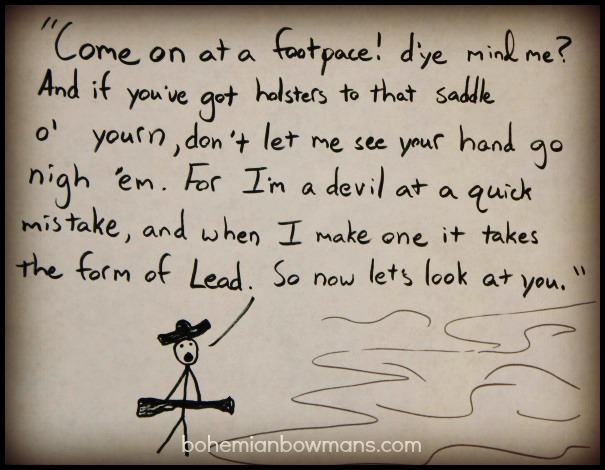 "Come on at a footpace! d'ye mind me?
And if you've got holsters to that saddle
o' yourn, don't let me see your hand go
nigh 'em. For I'm a devil at a quick
mistake, and when I make one it takes
the form of Lead. So now let's look at you."
bohemianbowmans.com